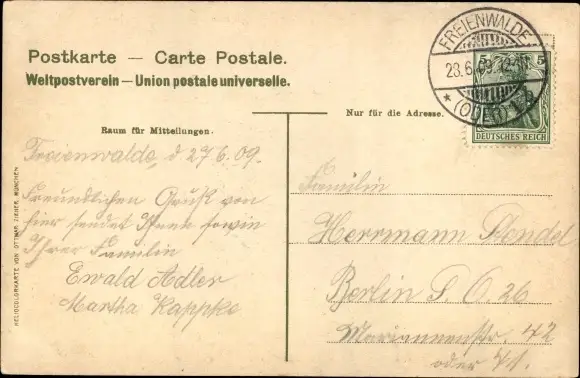 Postkarte — Carte Postale.
Weltpostverein — Union postale universelle.
FREIENWALDE
23.6.09.
* (ODER) 1
5 5
DEUTSCHES REICH
Nur für die Adresse.
Raum für Mitteilungen.
Freienwalde, d 27 6. 09.
Freundlichen Gruß von
hier sendet Ihnen sowie
Ihrer Familie
Ewald Adler
Martha Kappke
Familie
Herrmann Rendel
Berlin S. O. 26
Mariannenstr. 42
oder 41.
HELIOCOLORKARTE VON OTTMAR ZIEHER, MÜNCHEN